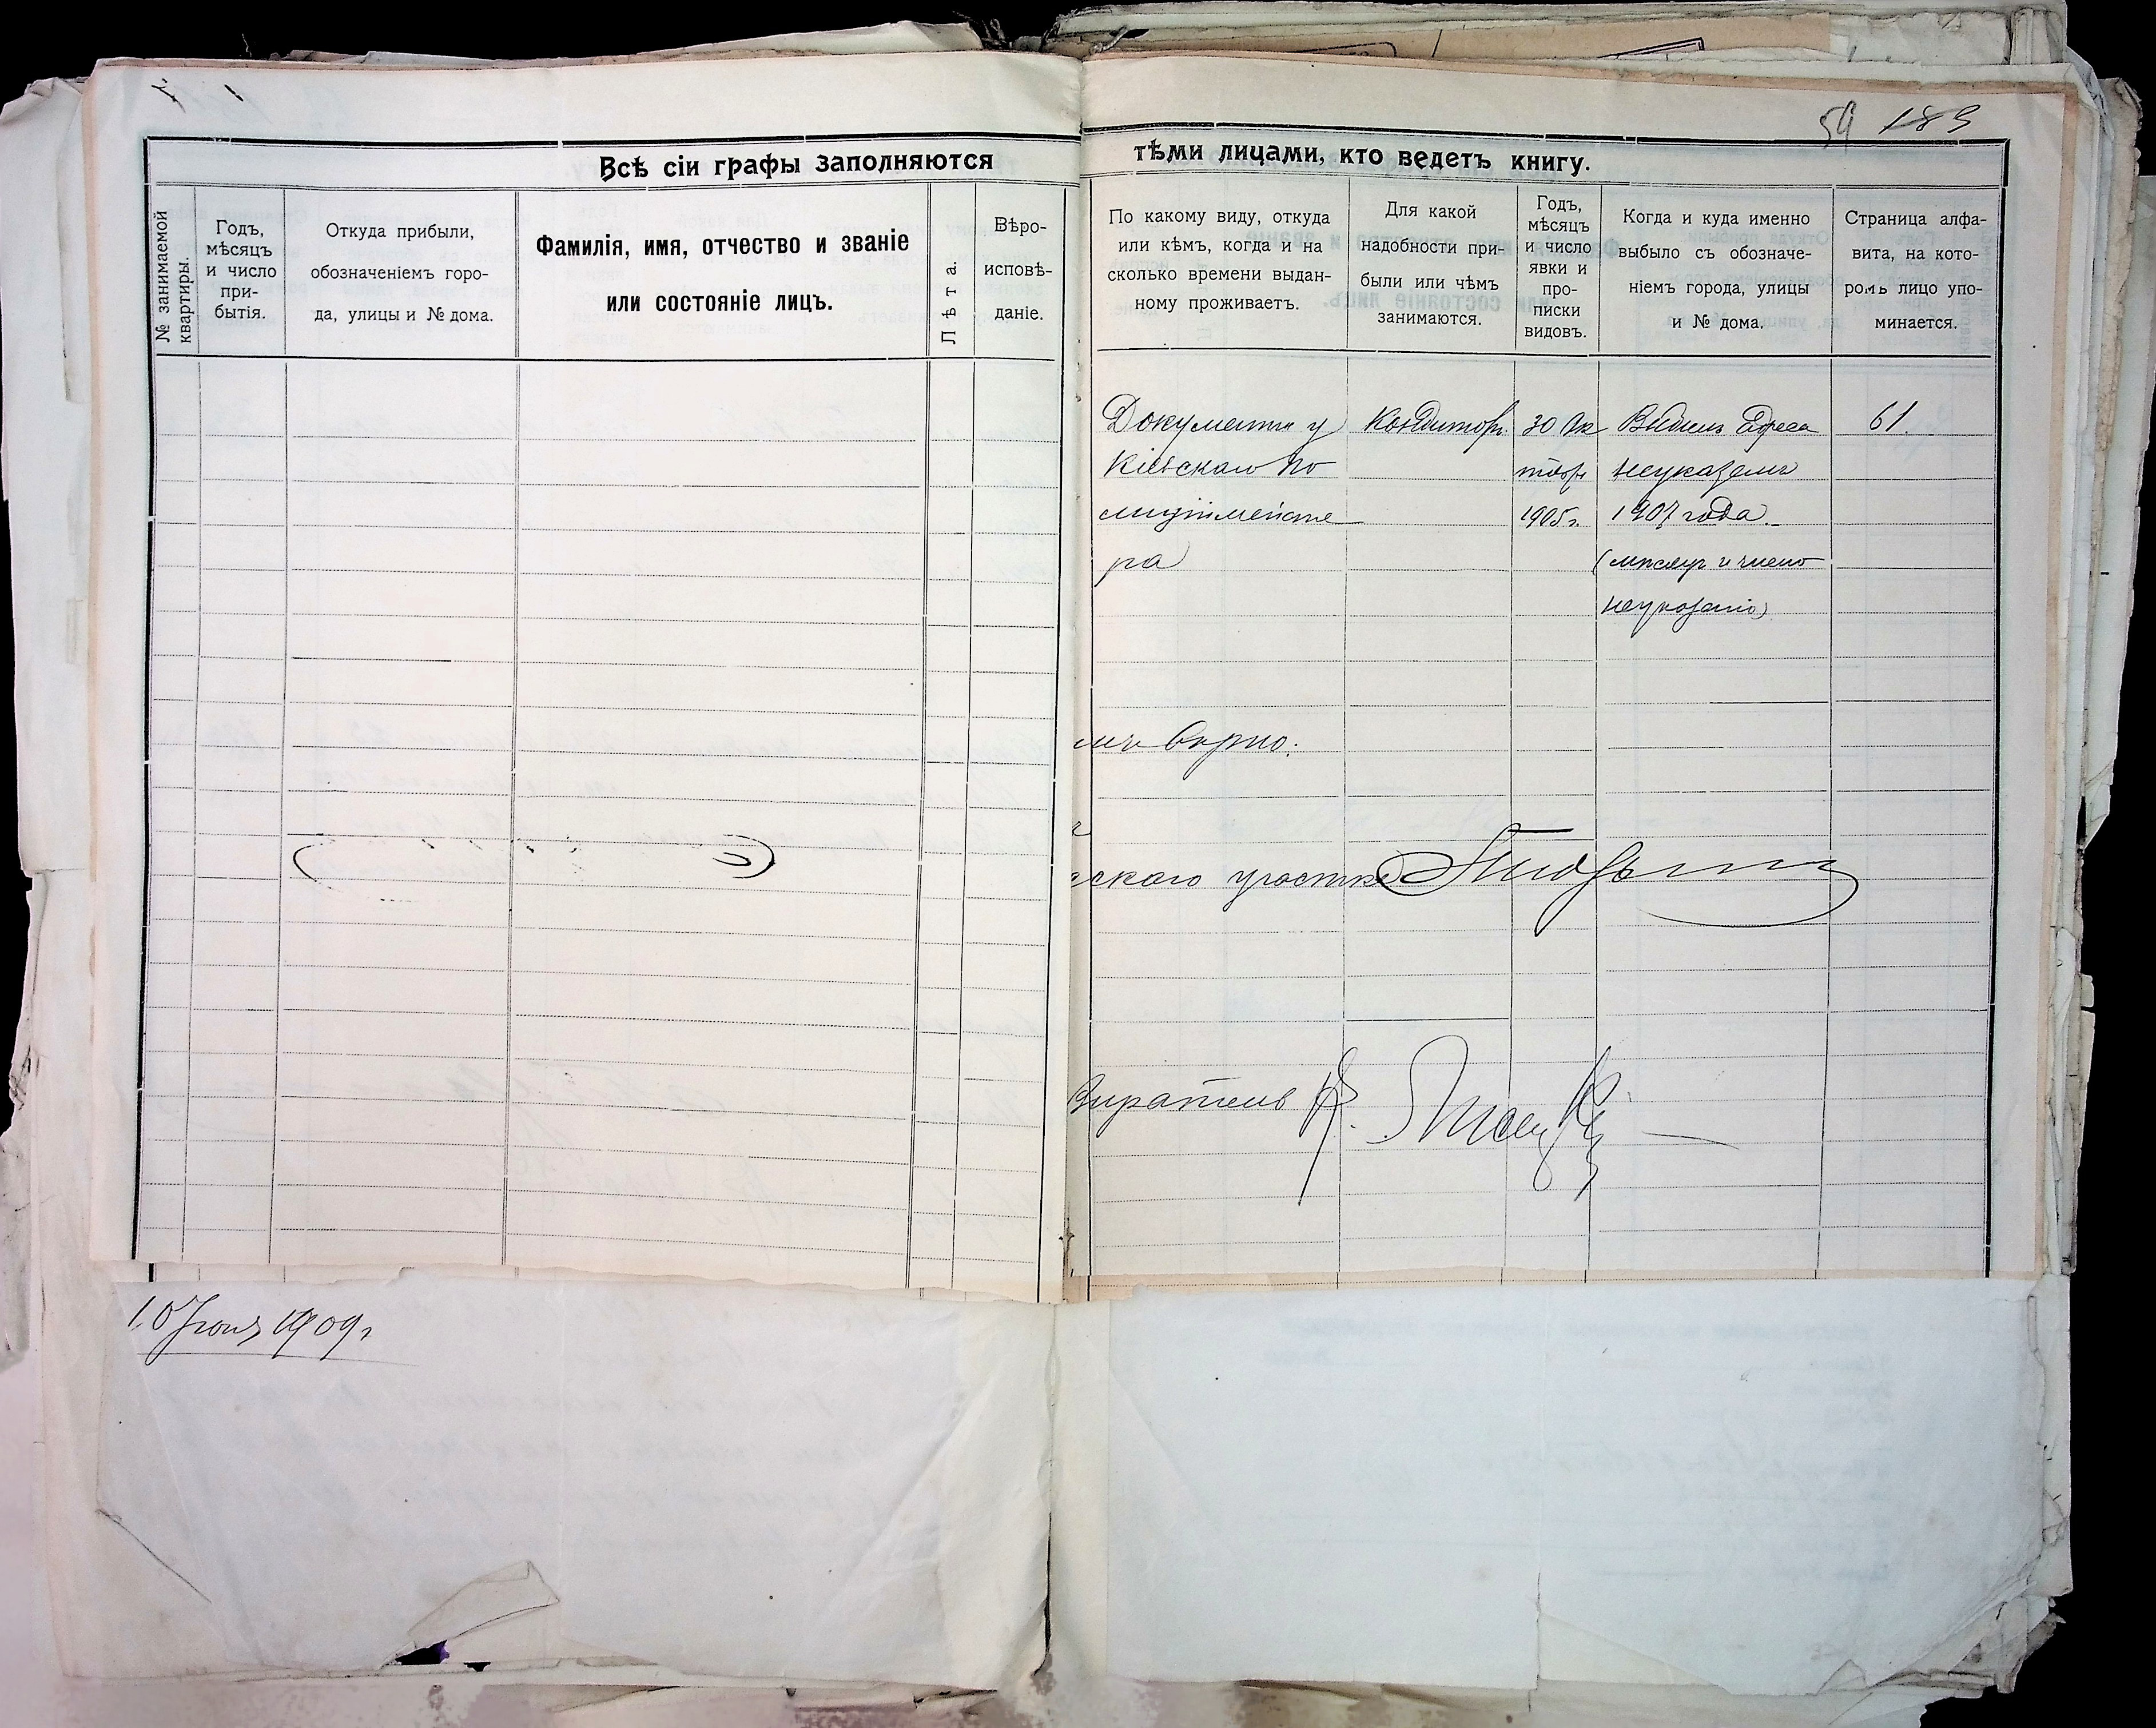 59 189
Всѣ сіи графы заполняются тѣми лицами, кто ведетъ книгу.
№ занимаемой
квартиры.
Годъ,
мѣсяцъ
и число
при-
бытія.
Откуда прибыли,
обозначеніемъ горо-
да, улицы и № дома.
Фамилія, имя, отчество и званіе
или состояніе лицъ.
Лѣта.
Вѣро-
исповѣ-
даніе.
По какому виду, откуда
или кѣмъ, когда и на
сколько времени выдан-
ному проживаетъ.
Для какой
надобности при-
были или чѣмъ
занимаются.
Годъ,
мѣсяцъ
и число
явки и
про-
писки
видовъ.
Когда и куда именно
выбыло съ обозначе-
ніемъ города, улицы
и № дома.
Страница алфа-
вита, на кото-
ромъ лицо упо-
минается.
Документы у
Кіевскаго по
лиціймейсте
ра
Кондиторъ
30 Ок
тябр
1905 г.
Выбылъ Адреса
неуказалъ
1907 года.
(мѣсяцъ и число
неуказано)
61.
вѣрно.
скаго участка
зиратель
10 Іюня 1909 г